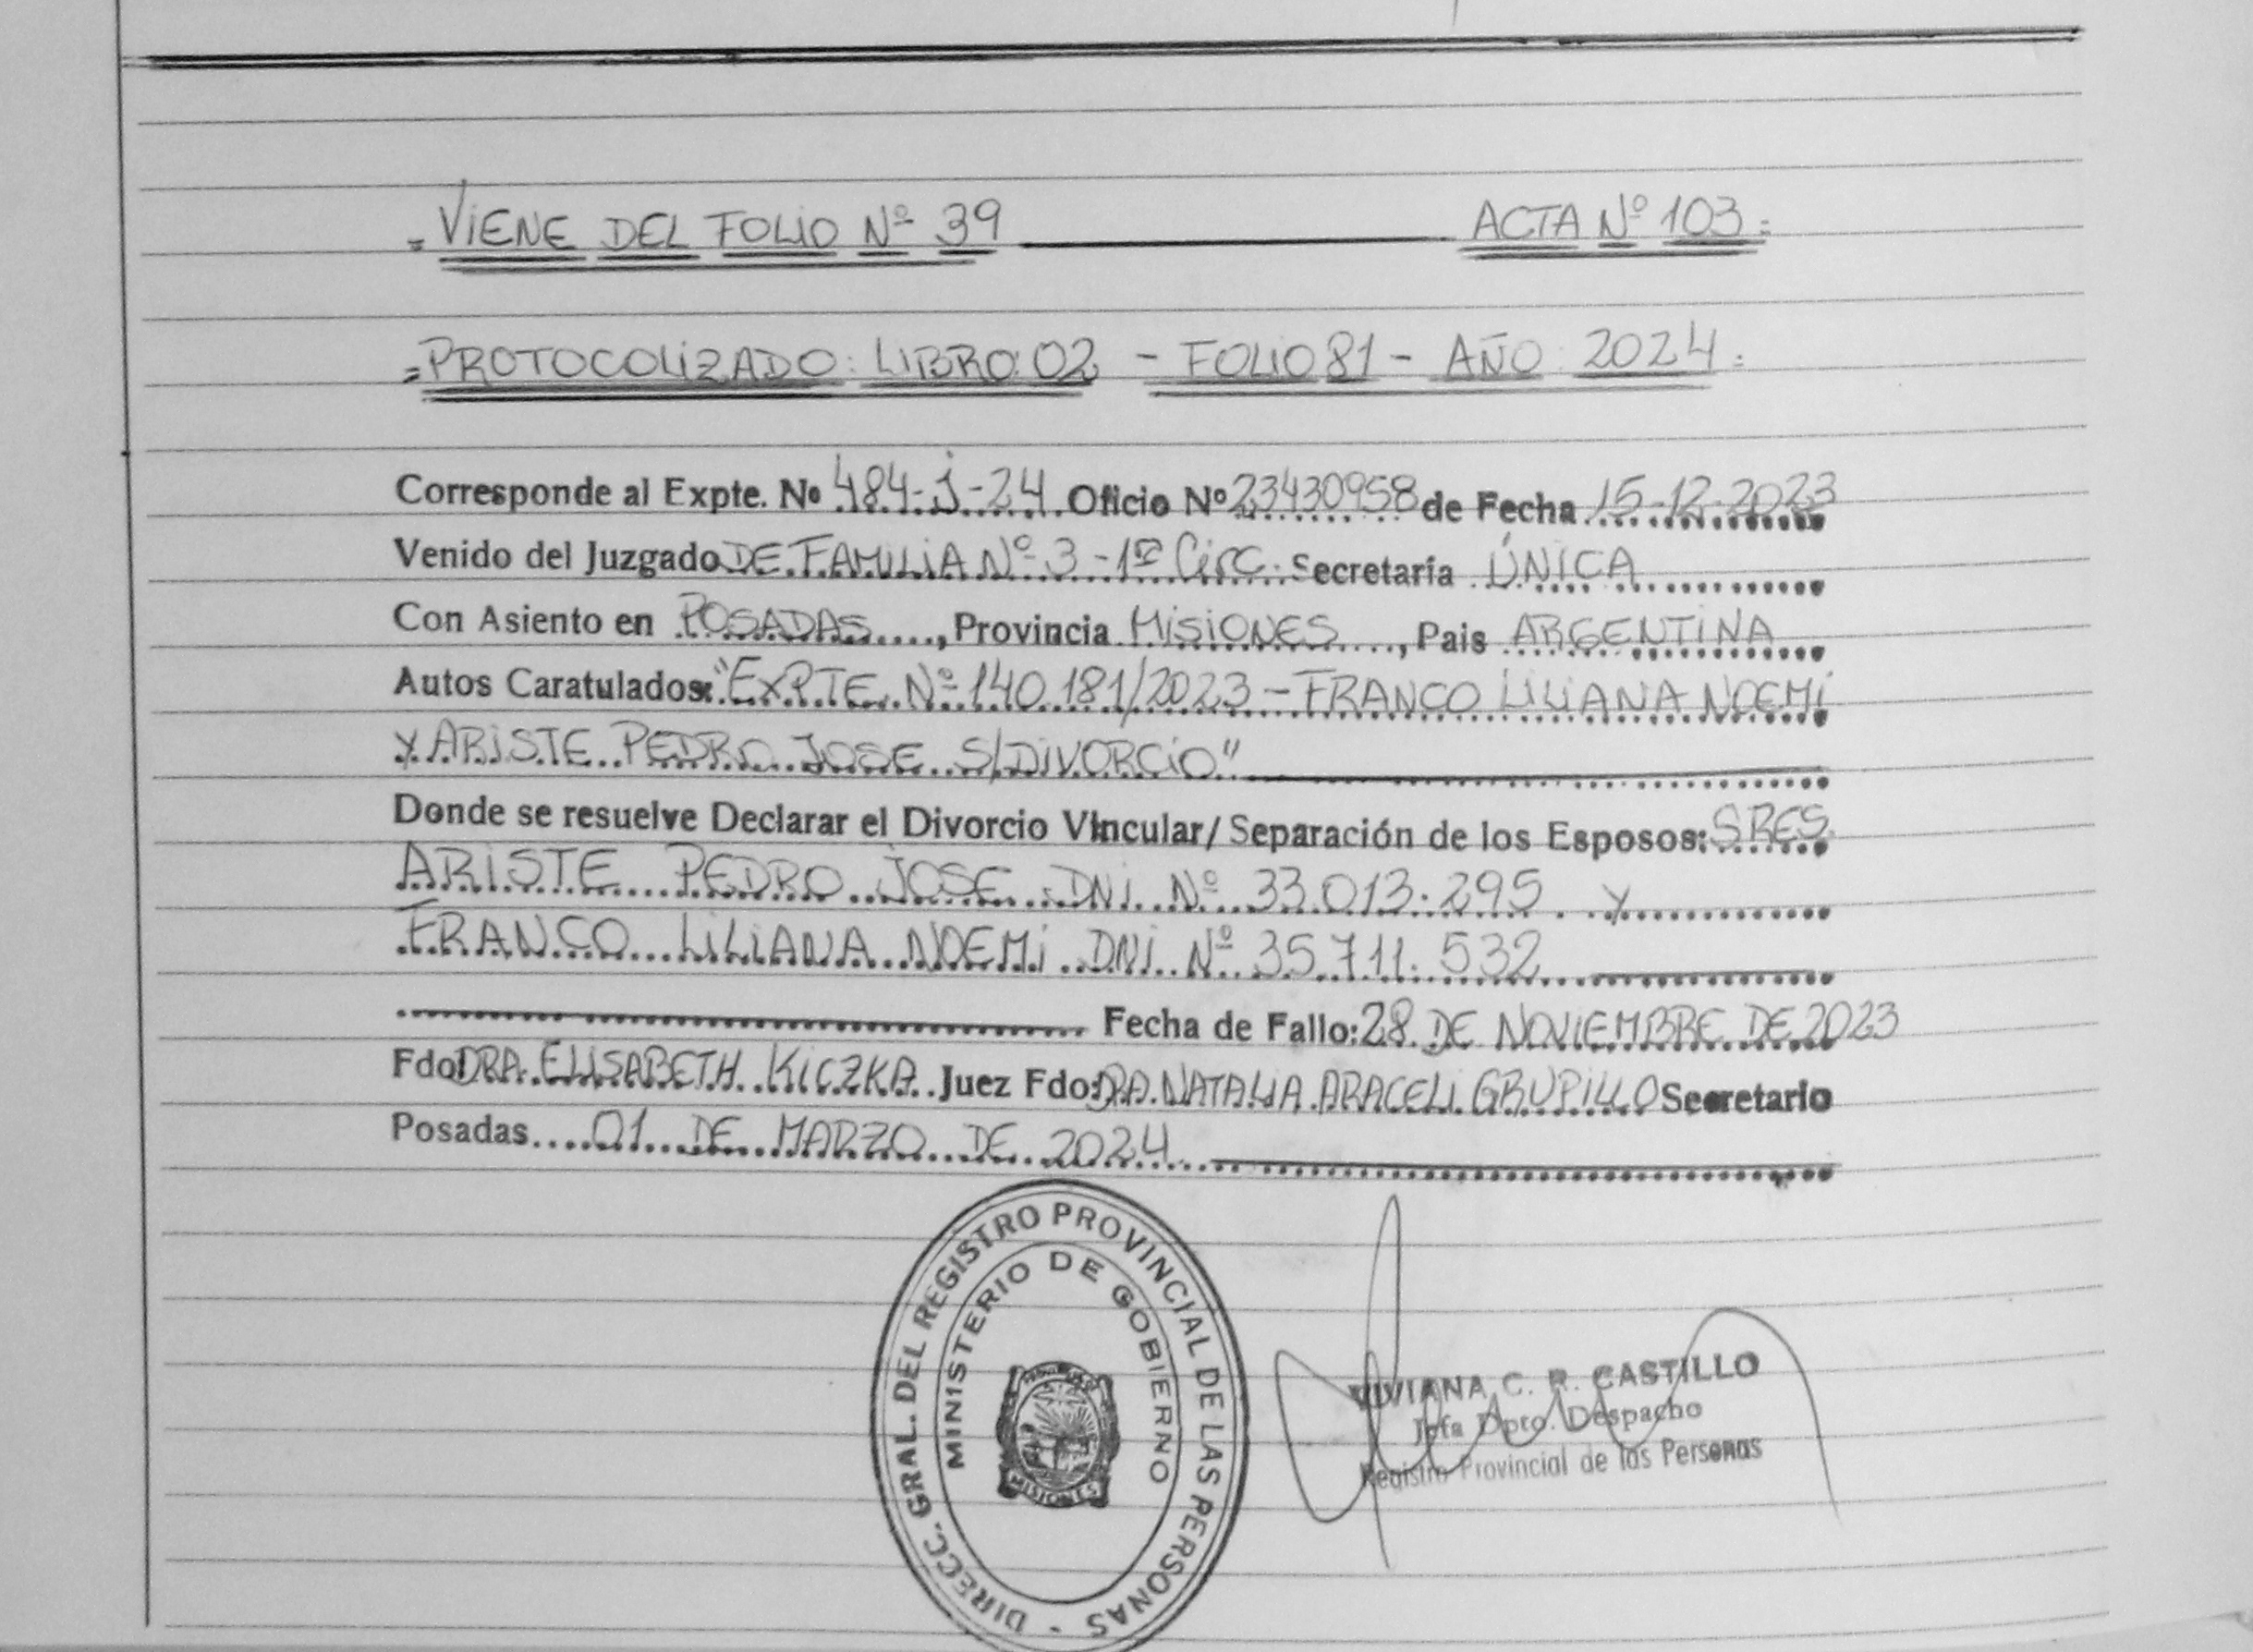 =VIENE DEL FOLIO Nº 39 ACTA Nº 103=
=PROTOCOLIZADO: LIBRO: 02 - FOLIO 81 - AÑO: 2024=
Corresponde al Expte. Nº 484-J-24 Oficio Nº 23430958 de Fecha 15-12-2023
Venido del Juzgado DE FAMILIA Nº 3 - 1ra Circ. Secretaría ÚNICA
Con Asiento en POSADAS, Provincia MISIONES, Pais ARGENTINA
Autos Caratulados: "EXPTE. Nº 140.181/2023 - FRANCO LILIANA NOEMI
Y ARISTE PEDRO JOSE S/DIVORCIO"
Donde se resuelve Declarar el Divorcio Vincular/ Separación de los Esposos: SRES.
ARISTE PEDRO JOSE DNI Nº 33.013.295 Y
FRANCO LILIANA NOEMI DNI Nº 35.711.532
Fecha de Fallo: 28 DE NOVIEMBRE DE 2023
Fdo: DRA. ELISABETH KICZKA Juez Fdo: DRA. NATALIA ARACELI GRUPILLO Secretario
Posadas 01 DE MARZO DE 2024
DIRECC. GRAL. DEL REGISTRO PROVINCIAL DE LAS PERSONAS -
MINISTERIO DE GOBIERNO
MISIONES
VIVIANA C. R. CASTILLO
Jefa Dpto. Despacho
Registro Provincial de las Personas